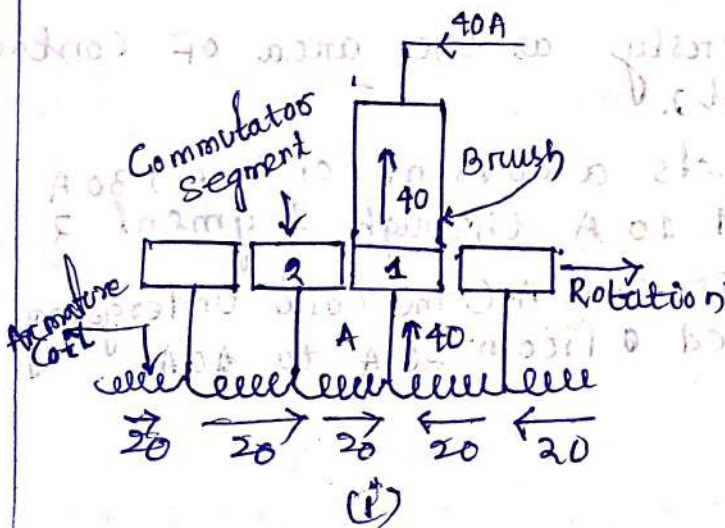 40A
Commutator
Segment
40
Brush
2
1
Rotation
Armature
Coil
A
40
20 20 20 20 20
(i)